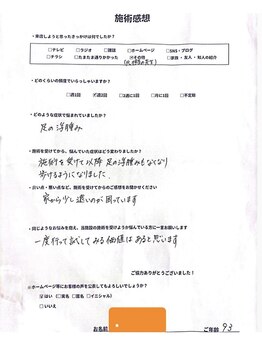 施術感想
・来店しようと思ったきっかけは何でしたか?
□テレビ □ラジオ □雑誌 □ホームページ □SNS・ブログ
□チラシ □たまたま通りかかった ☑その他 □家族・友人・知人の紹介
・どのくらいの頻度でいらっしゃいますか?
□週1回 ☑週2回 □2週に1回 □月に1回 □不定期
・どのような症状で悩まれていましたか?
足の浮腫み
・施術を受けてから、悩んでいた症状はどう変わりましたか?
施術を受けて以降 足の浮腫みもなくなり
歩けるようになりました
・良い点・悪い点など、施術を受けてからのご感想をお聞かせください
家から少し遠いのが困っています
・同じようなお悩みを抱え、当施設の施術を受けようか悩んでいる方に一言お願いします
一度行って試してみる価値はあると思います
ご協力ありがとうございました!
・ホームページ等にお客様の声を公表してもよろしいでしょうか?
☑はい (□実名 □匿名 □イニシャル)
□いいえ
お名前 ご年齢 93